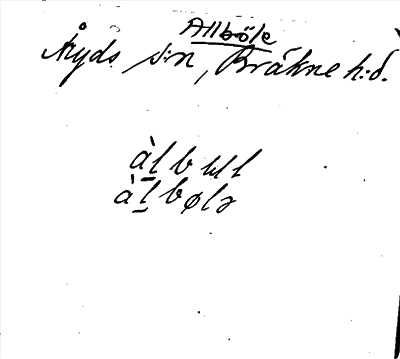 Allböle
Åryds s:n, Bräkne h:d.
àl̲bull
àl̲bølə